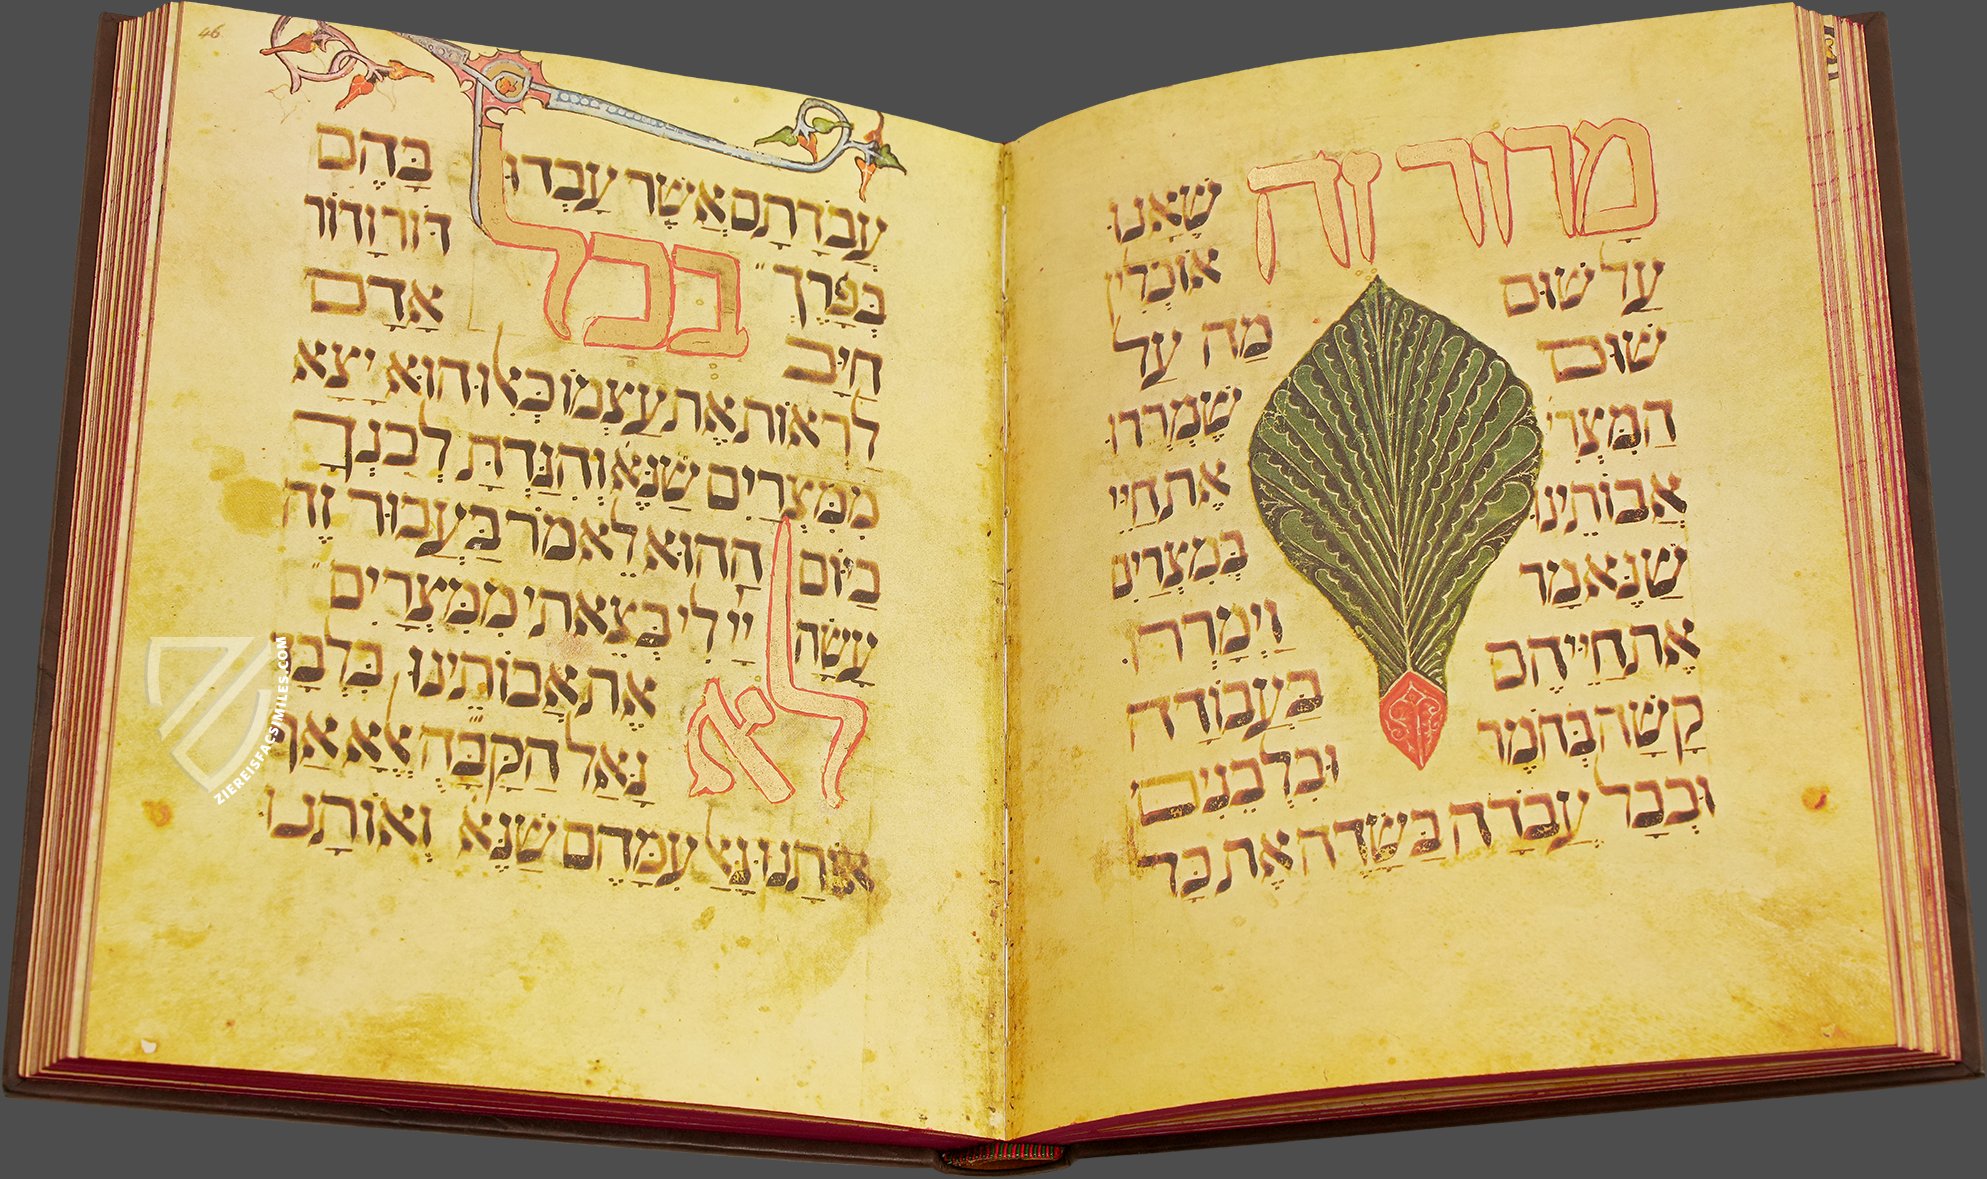 מָרוֹר זֶה שֶׁאָנוּ
אוֹכְלִין
עַל שׁוּם מַה עַל
שׁוּם שֶׁמֵּרְרוּ
הַמִּצְרִי אֶת חַיֵּי
אֲבוֹתֵינוּ בְּמִצְרַיִם
שֶׁנֶּאֱמַר וַיְמָרְרוּ
אֶת חַיֵּיהֶם בַּעֲבוֹדָה
קָשָׁה בְּחֹמֶר וּבִלְבֵנִים
וּבְכָל עֲבֹדָה בַּשָּׂדֶה אֶת כָּל
46
עֲבֹדָתָם אֲשֶׁר עָבְדוּ בָּהֶם
בְּפָרֶךְ בכל דּוֹר וָדוֹר
חַיָּב אָדָם
לִרְאוֹת אֶת עַצְמוֹ כְּאִלּוּ הוּא יָצָא
מִמִּצְרַיִם שֶׁנֶּא וְהִגַּדְתָּ לְבִנְךָ
בַּיּוֹם הַהוּא לֵאמֹר בַּעֲבוּר זֶה
עָשָׂה יְיָ לִי בְּצֵאתִי מִמִּצְרָיִם
לא אֶת אֲבוֹתֵינוּ בִּלְבָ
גָּאַל הַקָּבָּה אֶלָּא אַף
אוֹתָנוּ גָּאַל עִמָּהֶם שֶׁנֶּא וְאוֹתָנוּ
ZIEREISFACSIMILES.COM